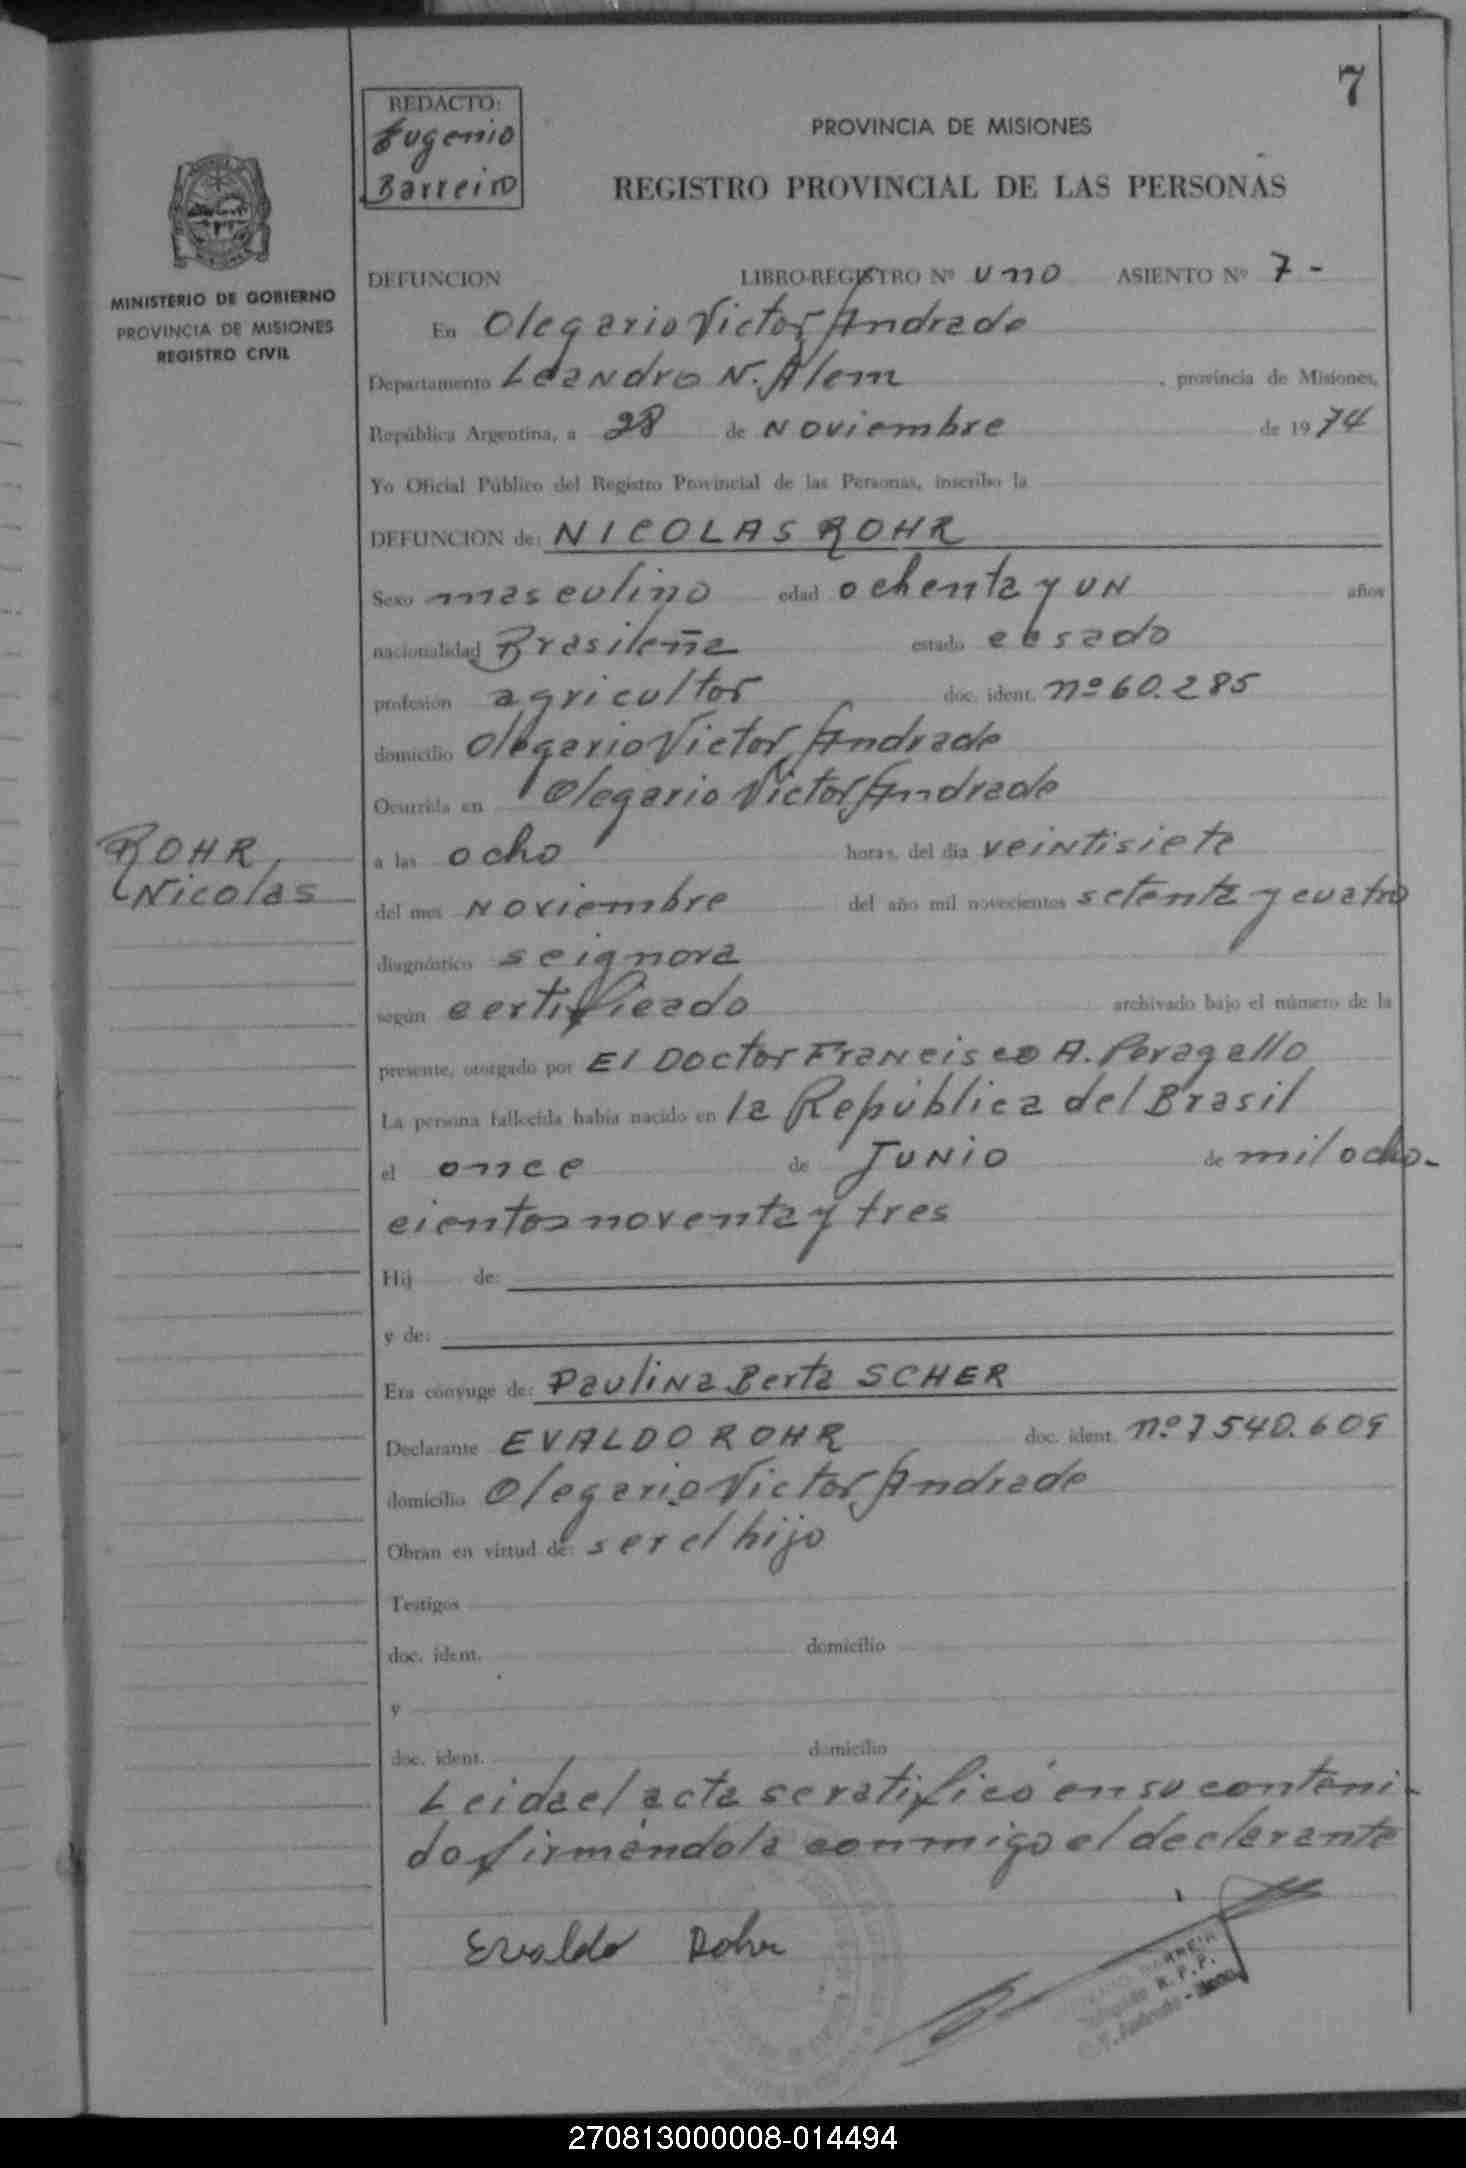 7
REDACTO:
Eugenio
Barreiro
PROVINCIA DE MISIONES
REGISTRO PROVINCIAL DE LAS PERSONAS
MINISTERIO DE GOBIERNO
PROVINCIA DE MISIONES
REGISTRO CIVIL
DEFUNCION LIBRO-REGISTRO Nº uno ASIENTO Nº 7-
En Olegario Victor Andrade
Departamento Leandro N. Alem, provincia de Misiones,
República Argentina, a 28 de Noviembre de 1974
Yo Oficial Público del Registro Provincial de las Personas, inscribo la
DEFUNCION de: NICOLAS ROHR
Sexo masculino edad ochenta y un años
nacionalidad Brasileña estado casado
profesión agricultor doc. ident. nº 60.285
domicilio Olegario Victor Andrade
Ocurrida en Olegario Victor Andrade
a las ocho horas, del día veintisiete
ROHR,
Nicolas
del mes Noviembre del año mil novecientos setenta y cuatro
diagnóstico se ignora
según certificado archivado bajo el número de la
presente, otorgado por El Doctor Francisco A. Peragallo
La persona fallecida había nacido en la República del Brasil
el once de Junio de mil ocho-
cientos noventa y tres
Hij de:
y de:
Era cónyuge de: Paulina Berta SCHER
Declarante EVALDO ROHR doc. ident. nº 7540.609
domicilio Olegario Victor Andrade
Obran en virtud de: ser el hijo
Testigos
doc. ident. domicilio
y
doc. ident. domicilio
Leida el acta se ratificó en su conteni-
do firmándola conmigo el declarante
Evaldo Rohr
270813000008-014494